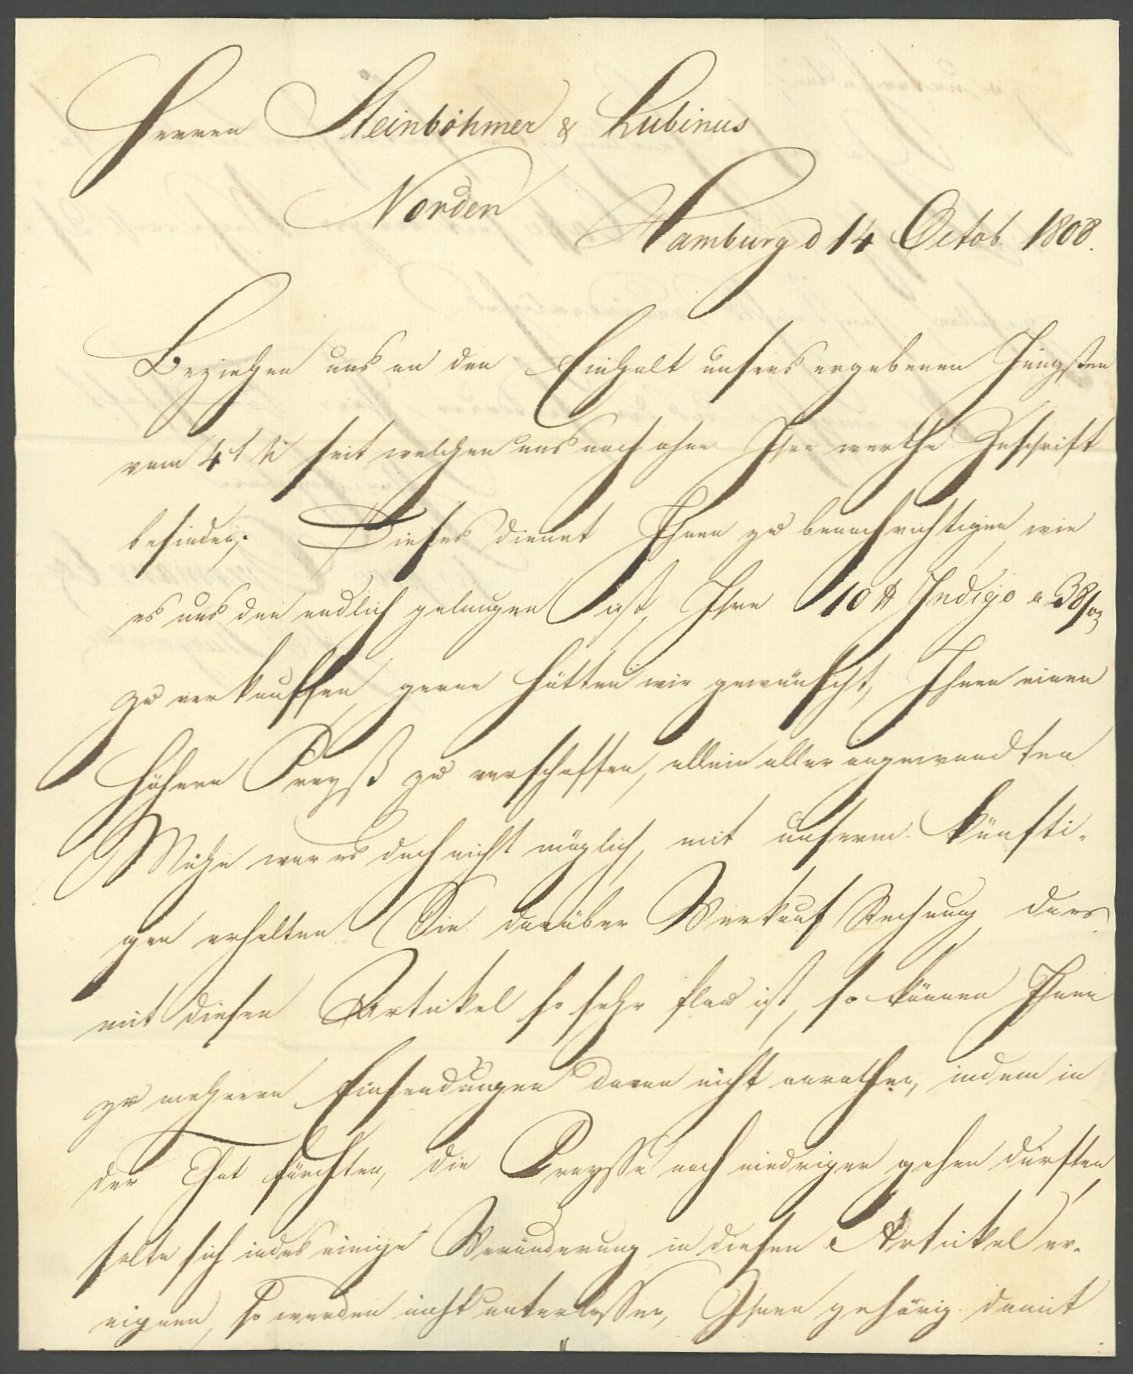 Herren Steinböhmer & Lubinus
Norden
Hamburg d 14 Octob. 1808.
Beziehen uns an den Einhalt unsers ergebenen Jüngsten
vom 4t seit welchen uns noch ohne Ihre werthe Zuschrift
befinden. Dieses dienet Ihnen zu benachrichtigen, wie
es uns den endlich gelungen ist, Ihre 10 ℔ Indigo a 38
zu verkauffen, gerne hätten wir gewünscht, Ihnen einen
höhern Preyß zu verschaffen, allein aller angewandten
Mühe war es doch nicht möglich, mit unserm künfti-
gen erhalten Sie darüber Verkauf Rechnung, da es
mit diesen Artickel so sehr flau ist, so können Ihnen
zu mehrern Einsendungen davon nicht anrathen, indem in
der That fürchten, die Preysse noch niedriger gehen dürften,
solte sich indes einige Veränderung in diesen Artickel er-
eignen, so werden nicht unterlassen, Ihnen gehörig damit